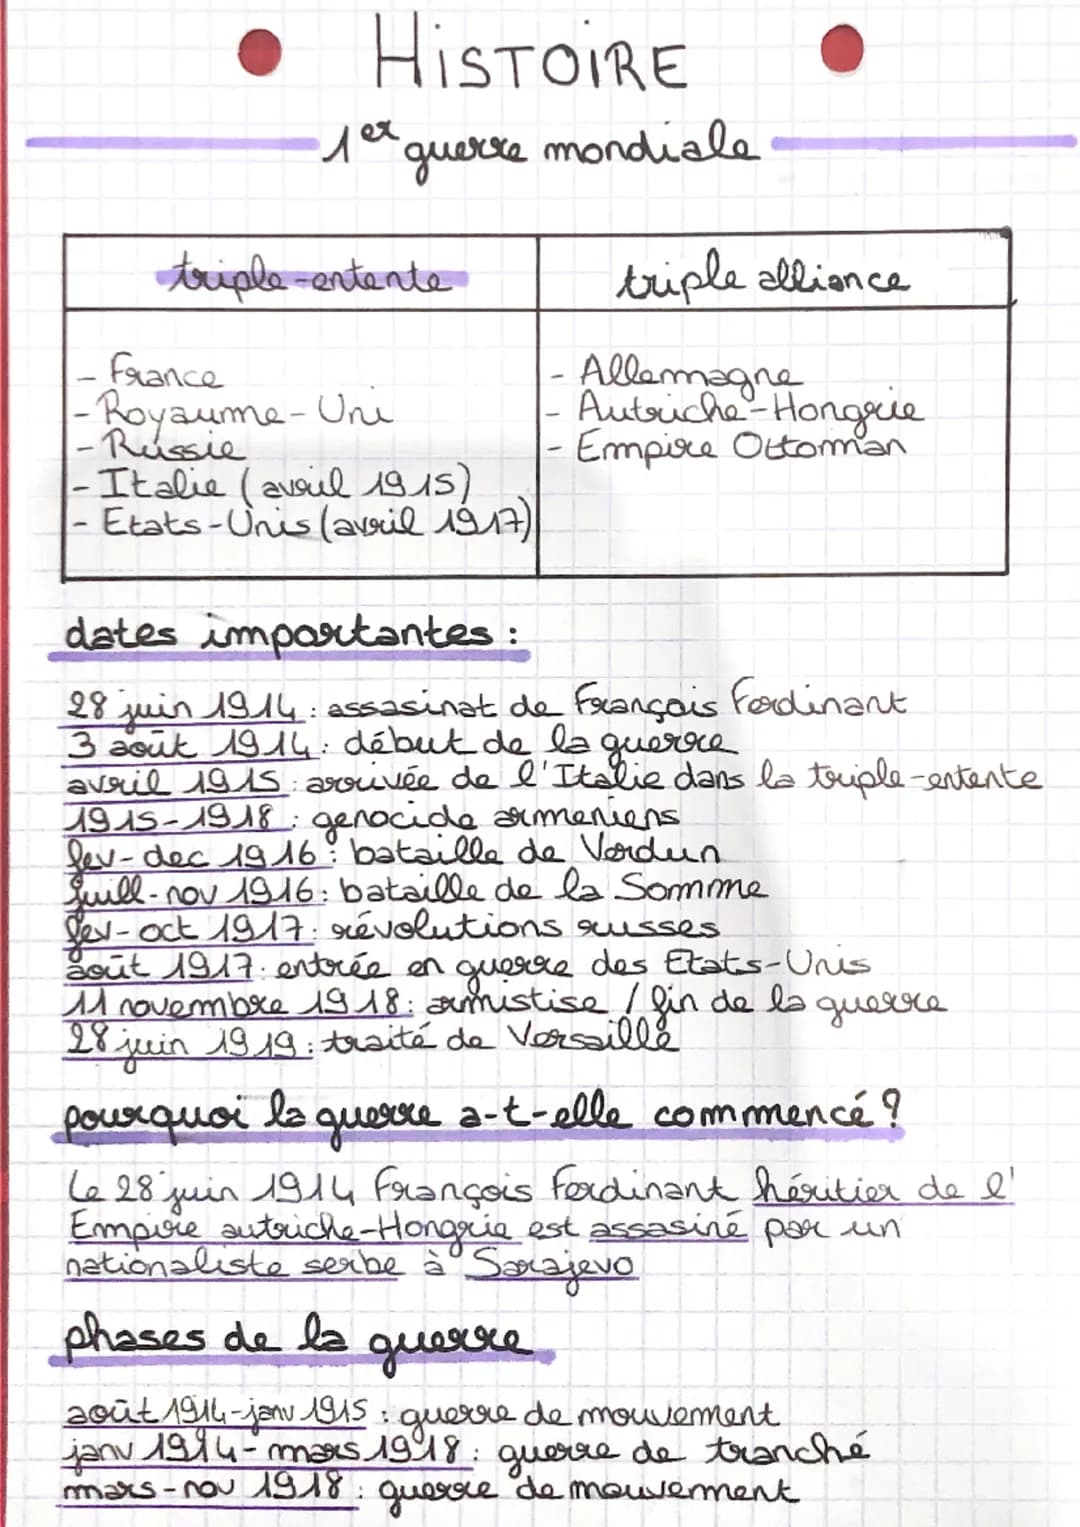 HISTOIRE
1er guerre mondiale
triple-entente
triple alliance
- France
- Royaume-Uni
- Russie
- Italie (avril 1915)
- Etats-Unis (avril 1917)
- Allemagne
- Autriche-Hongrie
- Empire Ottoman
dates importantes :
28 juin 1914 : assasinat de François Ferdinant
3 août 1914 : début de la guerre
avril 1915 : arrivée de l'Italie dans la triple-entente
1915-1918 : genocide armeniens
fev-dec 1916 : bataille de Verdun
juill-nov 1916 : bataille de la Somme
fev-oct 1917 : révolutions russes
août 1917 : entrée en guerre des Etats-Unis
11 novembre 1918 : armistise / fin de la guerre
28 juin 1919 : traité de Versaille
pourquoi la guerre a-t-elle commencé ?
Le 28 juin 1914 François Ferdinant héritier de l'
Empire autriche-Hongrie est assasiné par un
nationaliste serbe à Sarajevo
phases de la guerre
août 1914-janv 1915 : guerre de mouvement
janv 1914-mars 1918 : guerre de tranché
mars-nov 1918 : guerre de mouvement